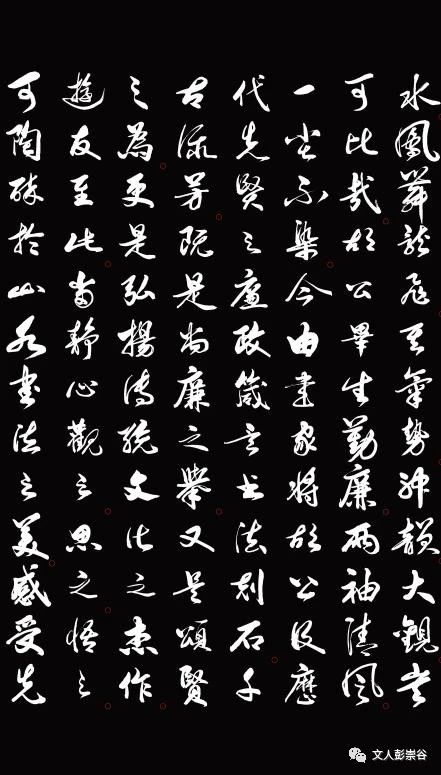 水鳳舞龍飛其氣勢神韻大觀
可比哉胡公畢生勤廉兩袖清風
一尘不染今由書家將胡公及歷
代先賢之廉政箴言書法刻石千
古流芳既是尚廉之舉又是頌賢
之為更是弘揚傳統文化之杰作
遊友至此當靜心觀之思之悟之
可陶醉於山水書法之美感受先
文人彭崇谷